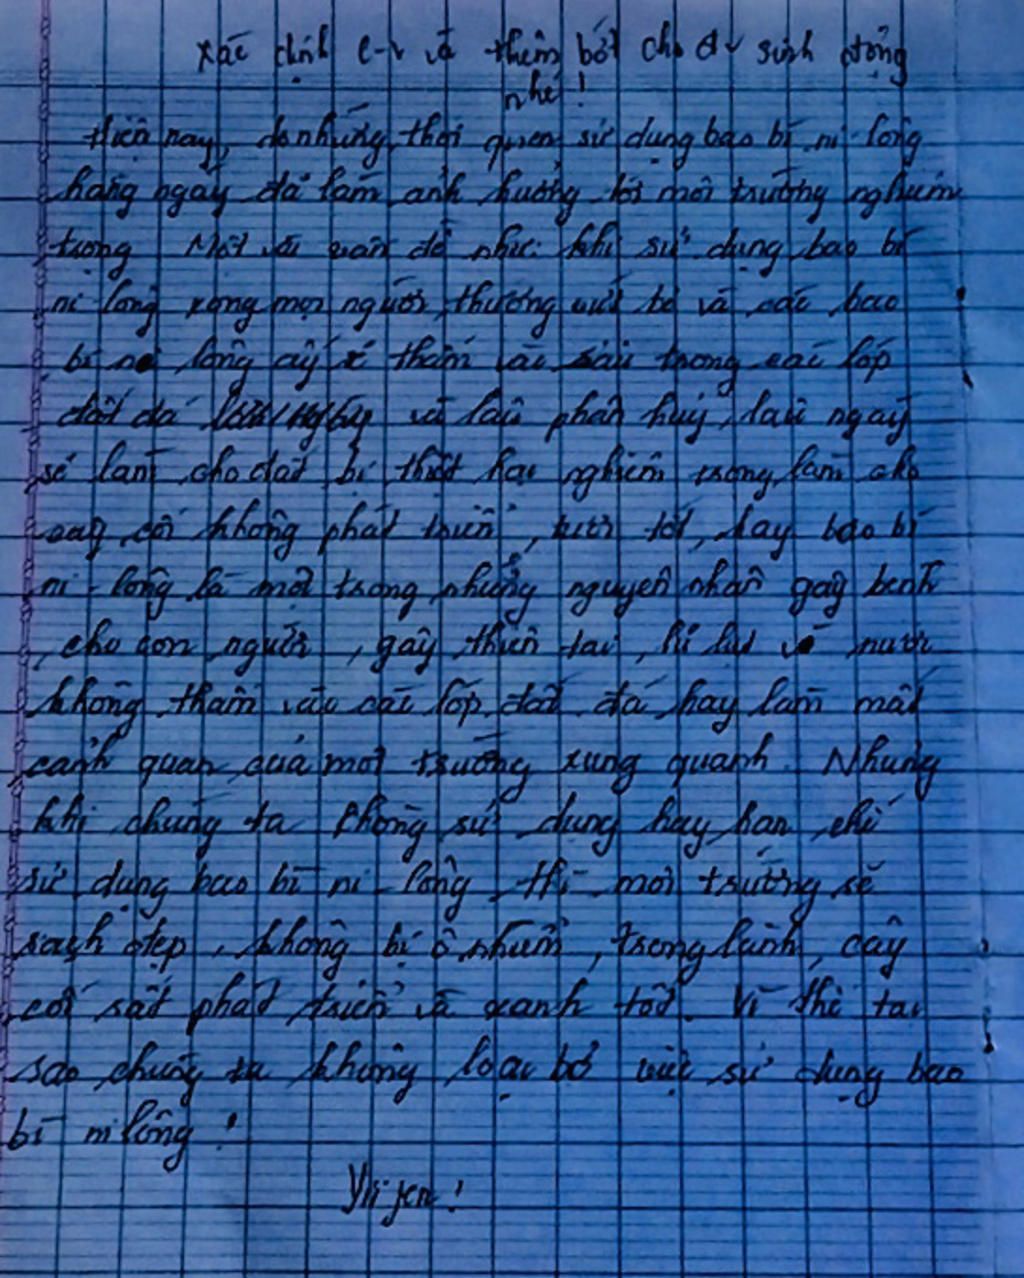 xác định c-v và thêm bớt cho đv sinh động
nhé!
Hiện nay, do những thói quen sử dụng bao bì ni-lông
hằng ngày đã làm ảnh hưởng tới môi trường nghiêm
trọng Một vài vấn đề như: khi sử dụng bao bì
ni lông xong mọi người thường vứt bỏ và các bao
bì ni lông ấy thấm vào sâu trong các lớp
đất đá và lâu phân huỷ, lâu ngày
sẽ làm cho đất bị thiệt hại nghiêm trọng, làm cho
cây cối không phát triển, tươi tốt, hay bao bì
ni-lông là một trong những nguyên nhân gây bệnh
cho con người, gây thiên tai, lũ lụt vì nước
không thấm vào các lớp đất đá hay làm mất
cảnh quan của môi trường xung quanh. Nhưng
khi chúng ta không sử dụng hay hạn chế
sử dụng bao bì ni-lông thì môi trường sẽ
sạch đẹp, không bị ô nhiễm, trong lành, cây
cối sất phát triển và xanh tốt. Vì thế tại
sao chúng ta không loại bỏ việc sử dụng bao
bì ni lông!